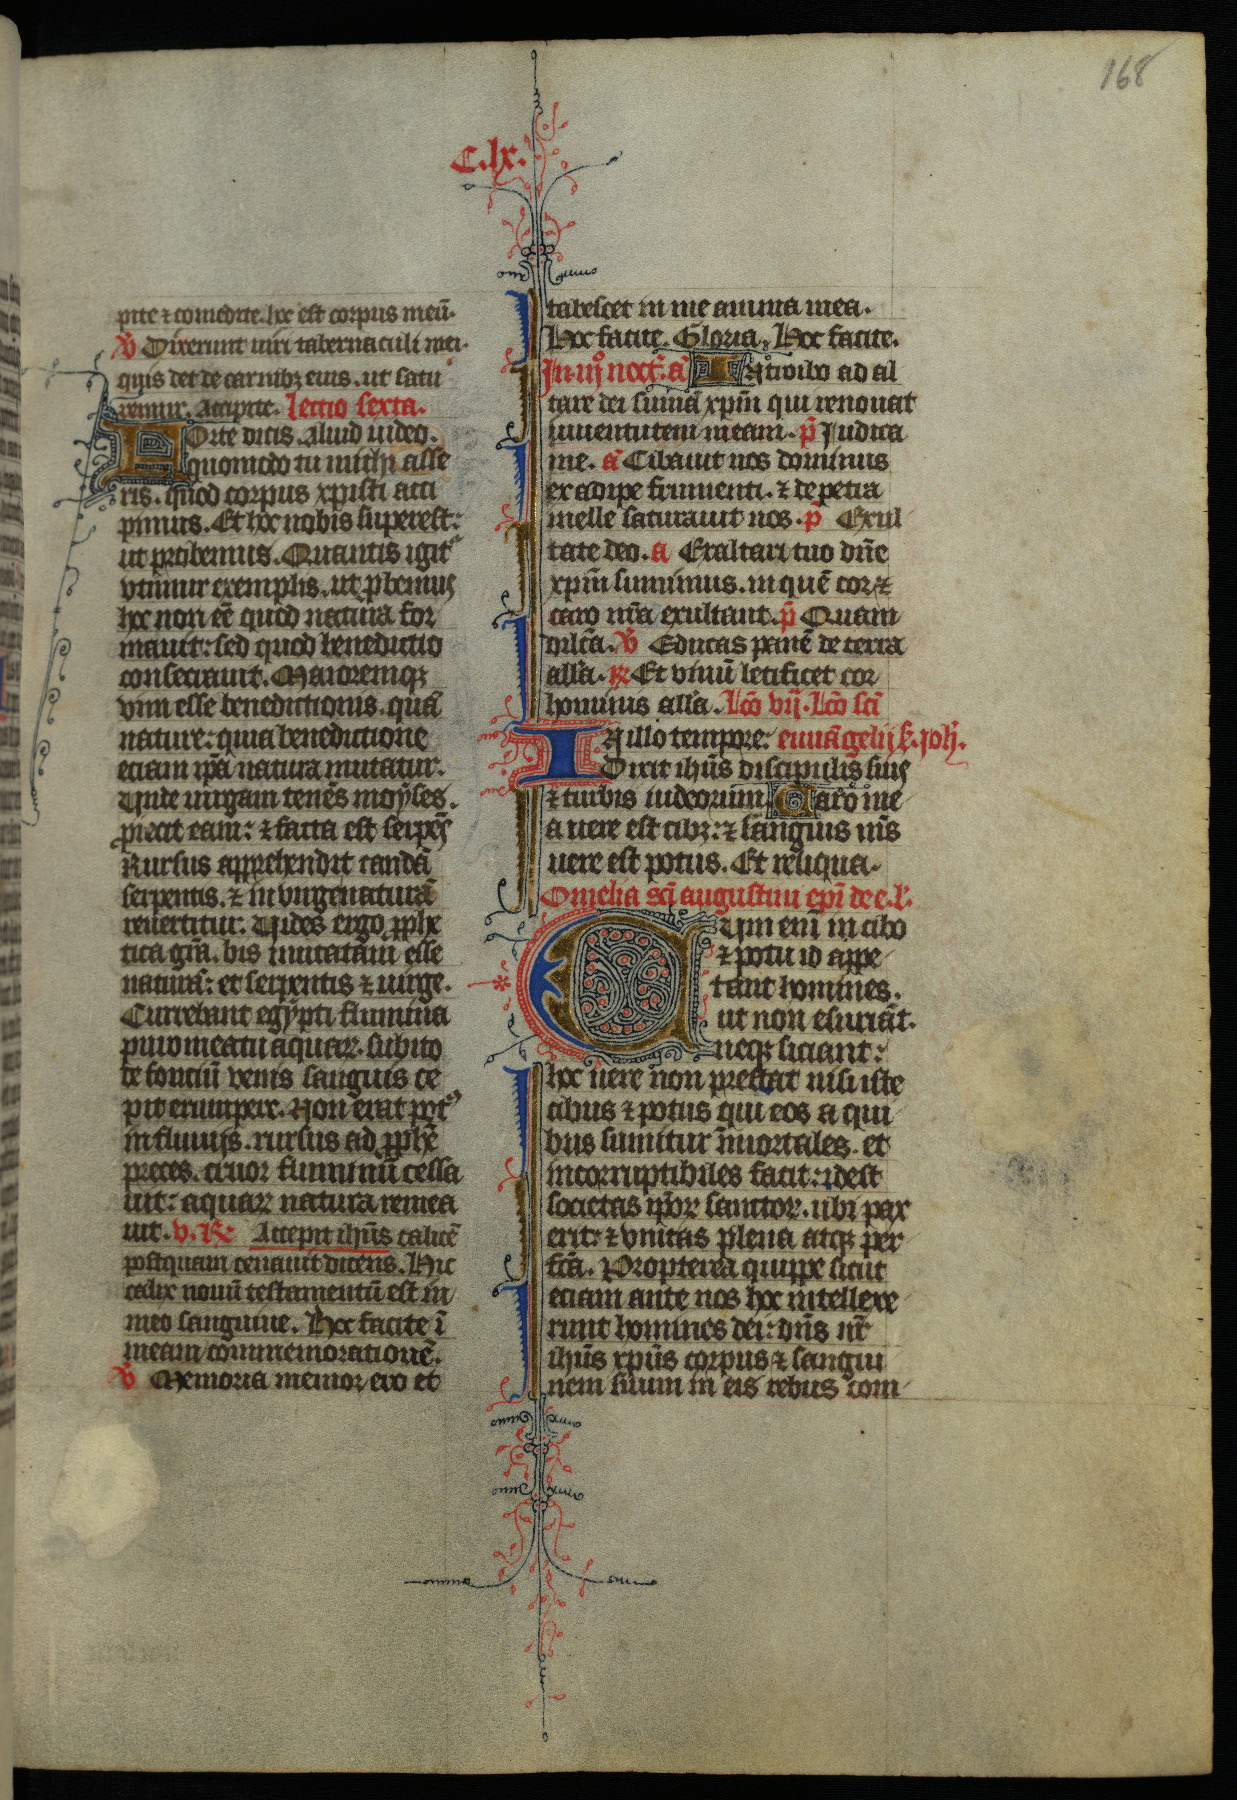 168
C.lx.
pite ⁊ comedite. hoc est corpus meū.
℣ Dixerunt uiri tabernaculi mei.
quis det de carnibꝫ eius. ut satu
remur. Accipite. Lectio sexta.
Forte dicis. Aliud uideo.
quomodo tu michi asse
ris. quod corpus xpisti acci
pimus. Et hoc nobis superest:
ut probemus. Quantis igit᷑
vtimur exemplis. ut ꝓbemus
hoc non eē quod natura for
mauit: sed quod benedictio
consecrauit. Maioremqꝫ
vim esse benedictionis. quā
nature: quia benedictione
eciam ip̄a natura mutatur.
Unde uirgam tenēs moyses.
ꝓiecit eam: ⁊ facta est serpēs
Rursus apprehendit caudā
serpentis. ⁊ in virge naturā
reuertitur. Uides ergo ꝓphe
tica gr̄a. bis mutatam esse
naturā: et serpentis ⁊ uirge.
Currebant egypti flumina
puro meatu aquaꝝ. subito
te fonciū venis sanguis ce
pit erumpere. Non erat potꝰ
in fluuijs. rursus ad ꝓphē
preces. cruor fluminū cessa
uit: aquaꝝ natura remea
uit. v. ℟ Accepit ihūs calicē
postquam cenauit dicens. Hic
calix nouū testamentū est in
meo sanguine. Hoc facite ī
meam commemorationē.
℣ Memoria memor ero et
tabescet in me anima mea.
Hoc facite. Gloria. Hoc facite.
In .iij noct᷑. a Introibo ad al
tare dei sumā xp̄m qui renouat
iuuentutem meam. p̄ Iudica
me. a Cibauit nos dominus
ex adipe frumenti. ⁊ de petra
melle saturauit nos. p̄ Exul
tate deo. a Ex altari tuo dn̄e
xp̄m sumimus. in quē cor ⁊
caro nr̄a exultant. p̄ Quam
dilc̄a. ℣ Educas panē de terra
all'a. ℟ Et vinū letificet cor
hominis all'a. Lc̄o vij. Lc̄o sc̄i
In illo tempore: euuāgelij ẜ. ioh̄.
Dixit ihūs discipulis suis
⁊ turbis iudeorum. Caro me
a uere est cibꝫ: ⁊ sanguis mꝰs
uere est potus. Et reliqua.
Omelia sc̄i augustini epī de e. l.
Cum enī in cibo
⁊ potu id appe
tant homines.
ut non esuriāt.
neqꝫ siciant:
hoc uere non prestat nisi iste
cibus ⁊ potus qui eos a qui
bus sumitur īmortales. et
incorruptibiles facit: idest
societas ip̄oꝝ sanctoꝝ. ubi pax
erit: ⁊ vnitas plena atqꝫ per
fc̄a. Propterea quippe sicut
eciam ante nos hoc intellexe
runt homines dei: dn̄s nr̄
ihūs xp̄us corpus ⁊ sangui
nem suum in eis rebus com